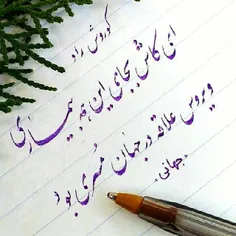 کوروش راد
ای کاش بجای این همه بیماری
ویروس علاقه در جهان مسری بود
"جهانی"